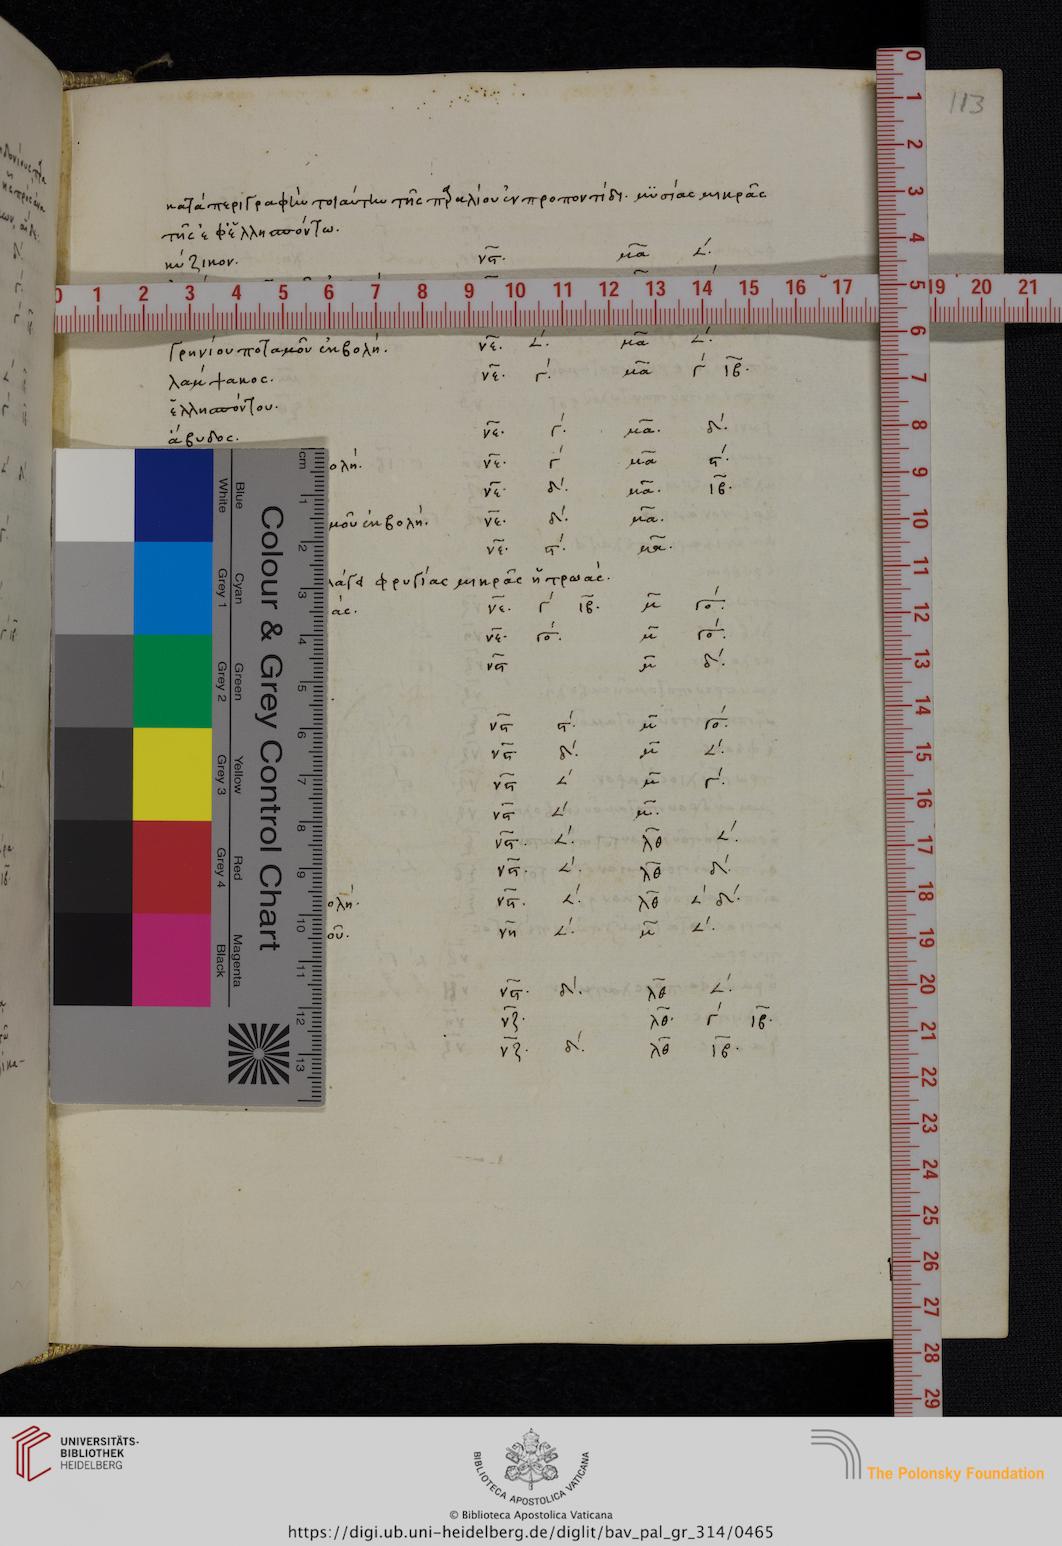 113
κατὰ περιγραφὴν τοιαύτην τῆς παραλίου ἐν προποντίδι. μυσίας μικρᾶς
τῆς ἐφ ἑλλησπόντω.
κύζικον. νϛ. μα 𐅵.
γρηνίου ποταμοῦ ἐκβολή. νε. 𐅵. μα 𐅵.
λαμψακος. νε. γ. μα γ ιβ.
ἑλλησπόντου.
ἄβυδος. νε. γ. μα. δ.
ολή. νε. γ μα ϛ.
νε. δ. μα. ιβ.
μοῦ ἐκβολή. νε. δ. μα.
νε. ϛ. μα.
φρυγίας μικρᾶς ἢ τρωάς.
άς. νε. γ ιβ. μ γο.
νε. γο. μ γο.
νϛ μ δ.
νϛ ϛ. μ γο.
νϛ δ. μ 𐅵.
νϛ 𐅵 μ γ.
νϛ 𐅵. μ.
νϛ 𐅵. λθ 𐅵.
νϛ. 𐅵. λθ δ.
ολή. νϛ. 𐅵. λθ 𐅵 δ.
οῦ. νη 𐅵. μ 𐅵.
νϛ. δ. λθ 𐅵.
νζ. λθ. γ ιβ.
νζ. δ. λθ ιβ.
0 1 2 3 4 5 6 7 8 9 10 11 12 13 14 15 16 17 19 20 21
0 1 2 3 4 5 6 7 8 9 10 11 12 13 14 15 16 17 18 19 20 21 22 23 24 25 26 27 28 29
Colour & Grey Control Chart
Blue Cyan Green Yellow Red Magenta
White Grey 1 Grey 2 Grey 3 Grey 4 Black
cm 1 2 3 4 5 6 7 8 9 10 11 12 13
UNIVERSITÄTS-
BIBLIOTHEK
HEIDELBERG
BIBLIOTECA APOSTOLICA VATICANA
The Polonsky Foundation
© Biblioteca Apostolica Vaticana
https://digi.ub.uni-heidelberg.de/diglit/bav_pal_gr_314/0465